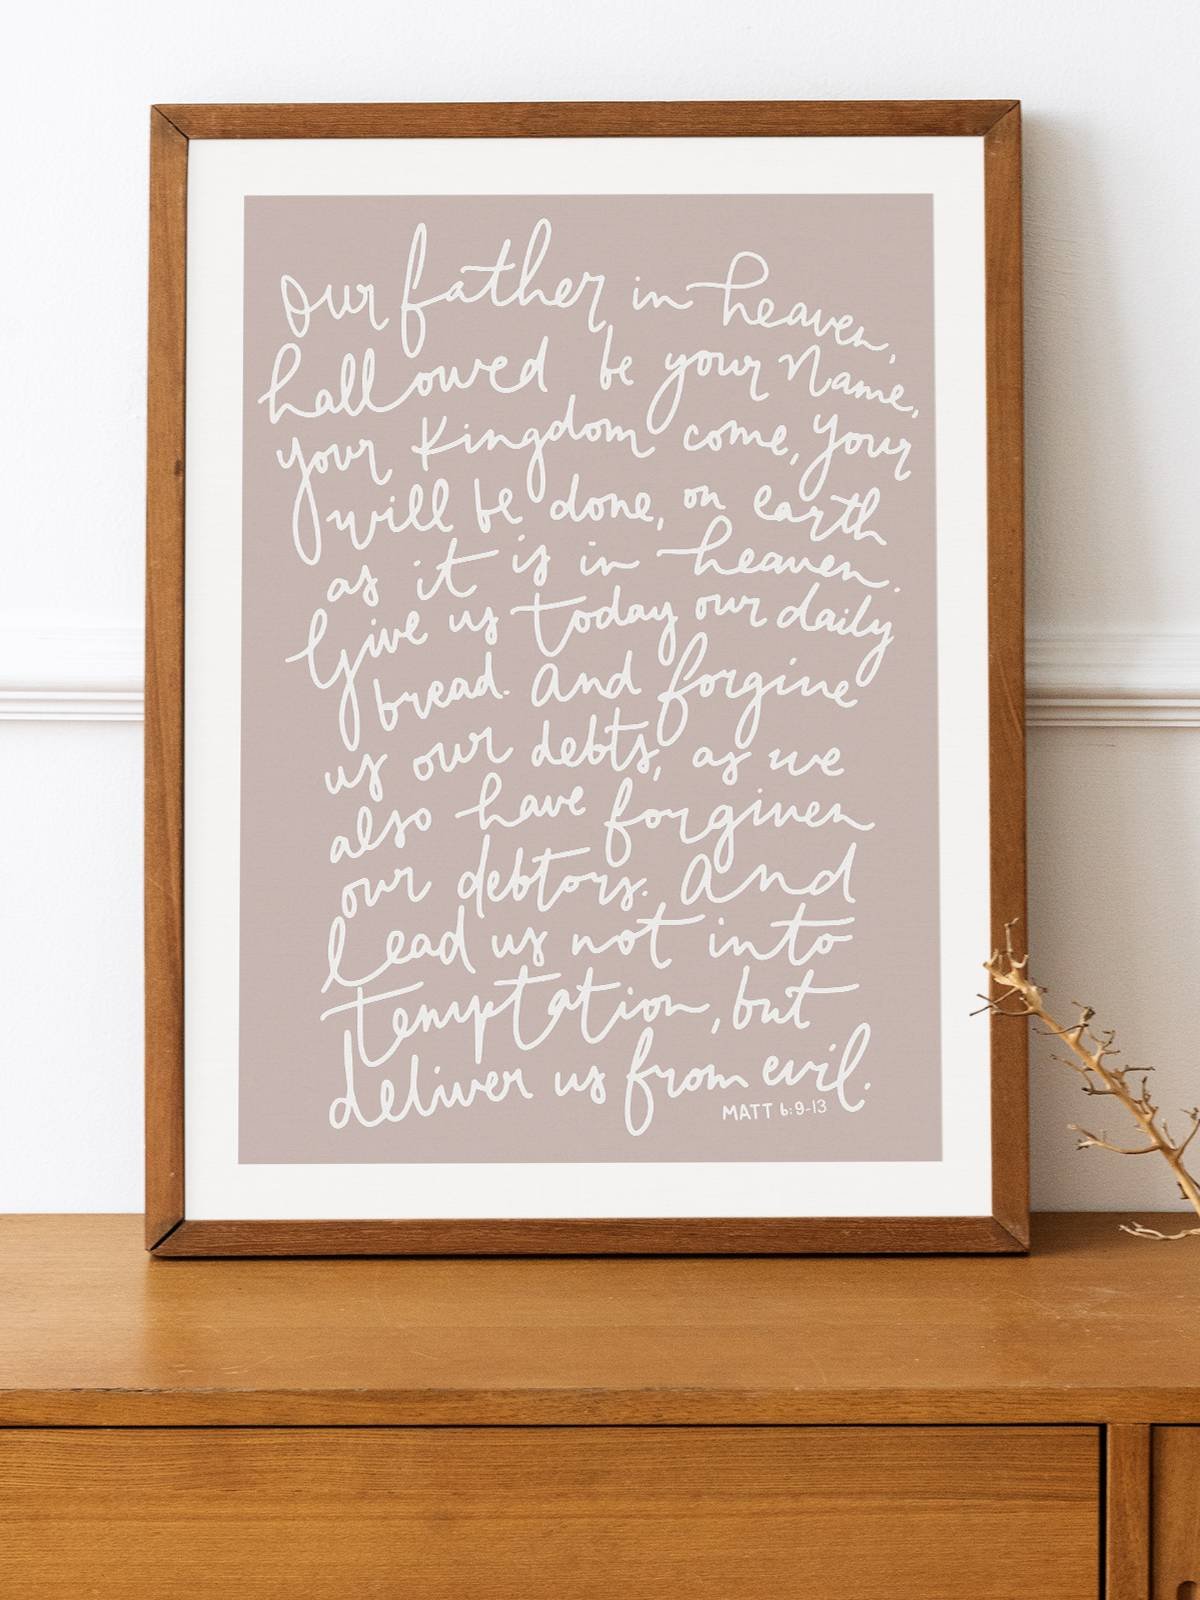 Our father in heaven,
hallowed be your Name,
your Kingdom come, your
will be done, on earth
as it is in heaven.
Give us today our daily
bread. And forgive
us our debts, as we
also have forgiven
our debtors. And
lead us not into
temptation, but
deliver us from evil.
MATT 6:9-13